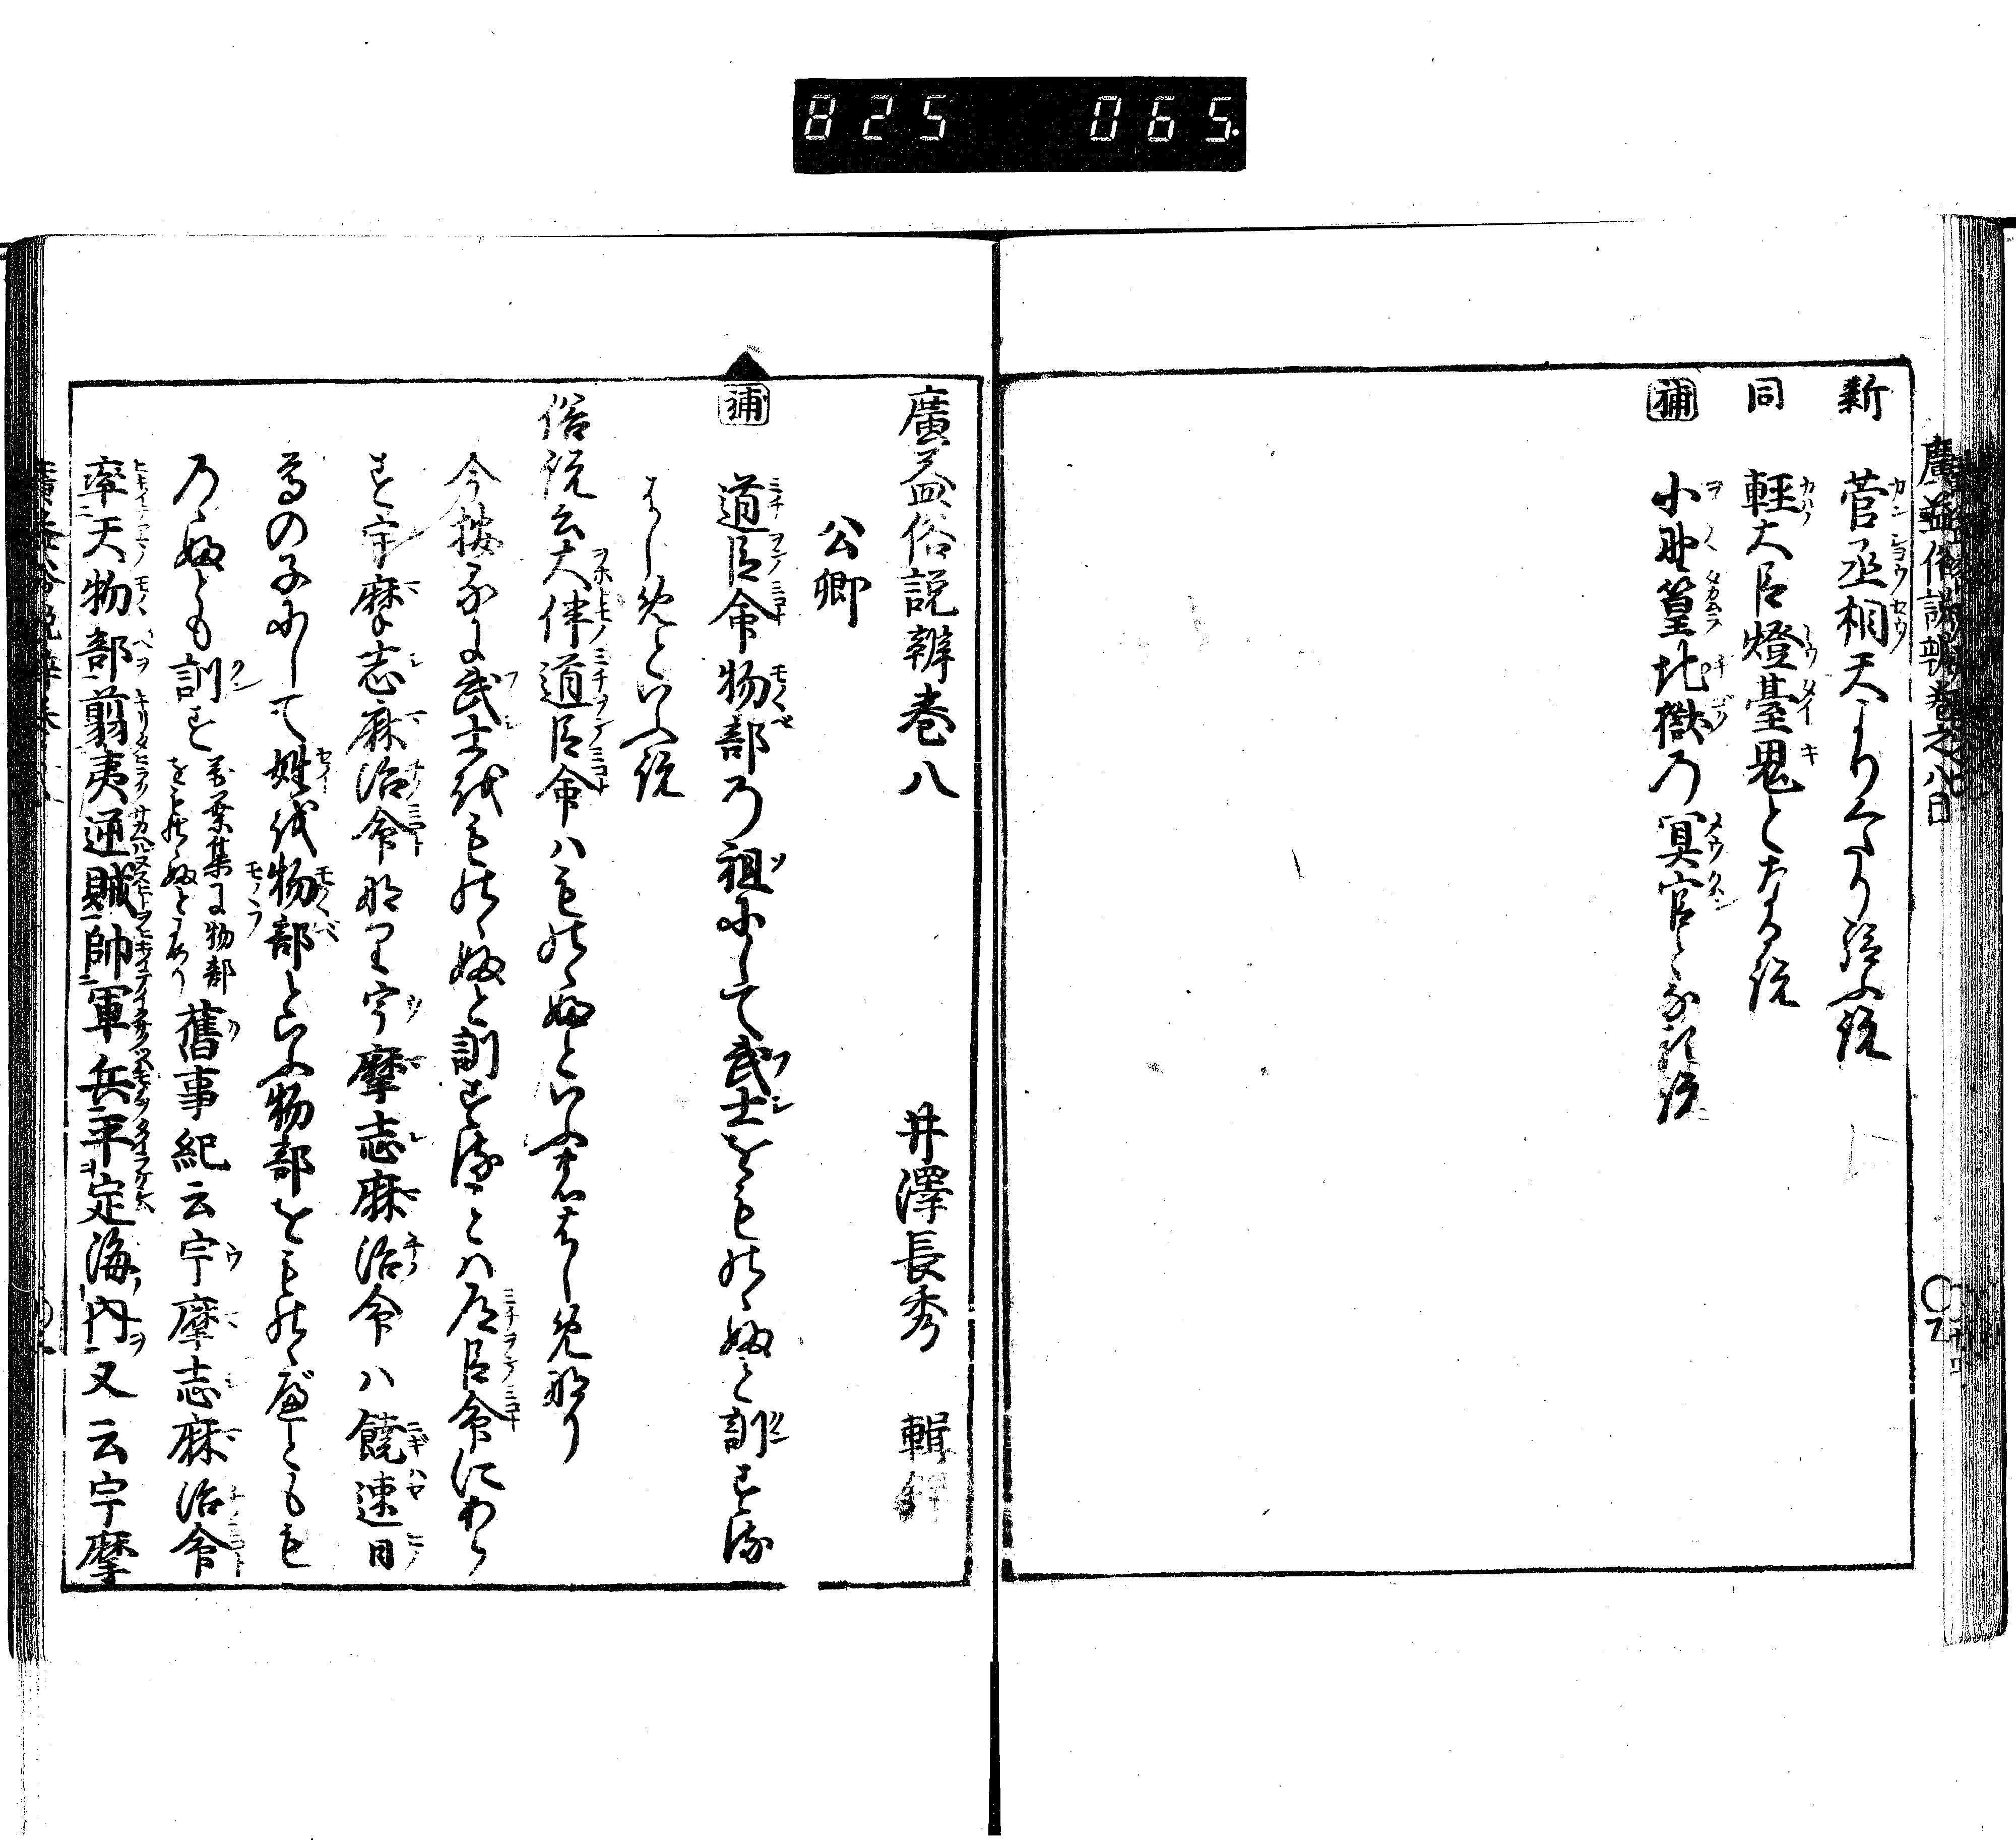 825 065.
廣益俗説辨巻之八目
新 菅丞相天より下り給ふ説
同 軽大臣燈臺鬼となる説
補 小野篁地獄乃冥官となる説
廣益俗説辨巻八 井澤長秀 輯
公卿
補 道臣命物部乃祖にして武士をものゝふと訓ずる
はじめといふ説
俗説云大伴道臣命ハものゝふといふ者はじめなり
今按るに武士をものゝふと訓ずることハ道臣命にあら
ず宇摩志麻治命なり宇摩志麻治命ハ饒速日
尊の子にして姓を物部といふ物部をものゝべともも
のゝふとも訓ず 萬葉集に物部をものゝふとあり 舊事紀云宇摩志麻治命
率天物部翦夷逆賊帥軍兵平定海内又云宇摩